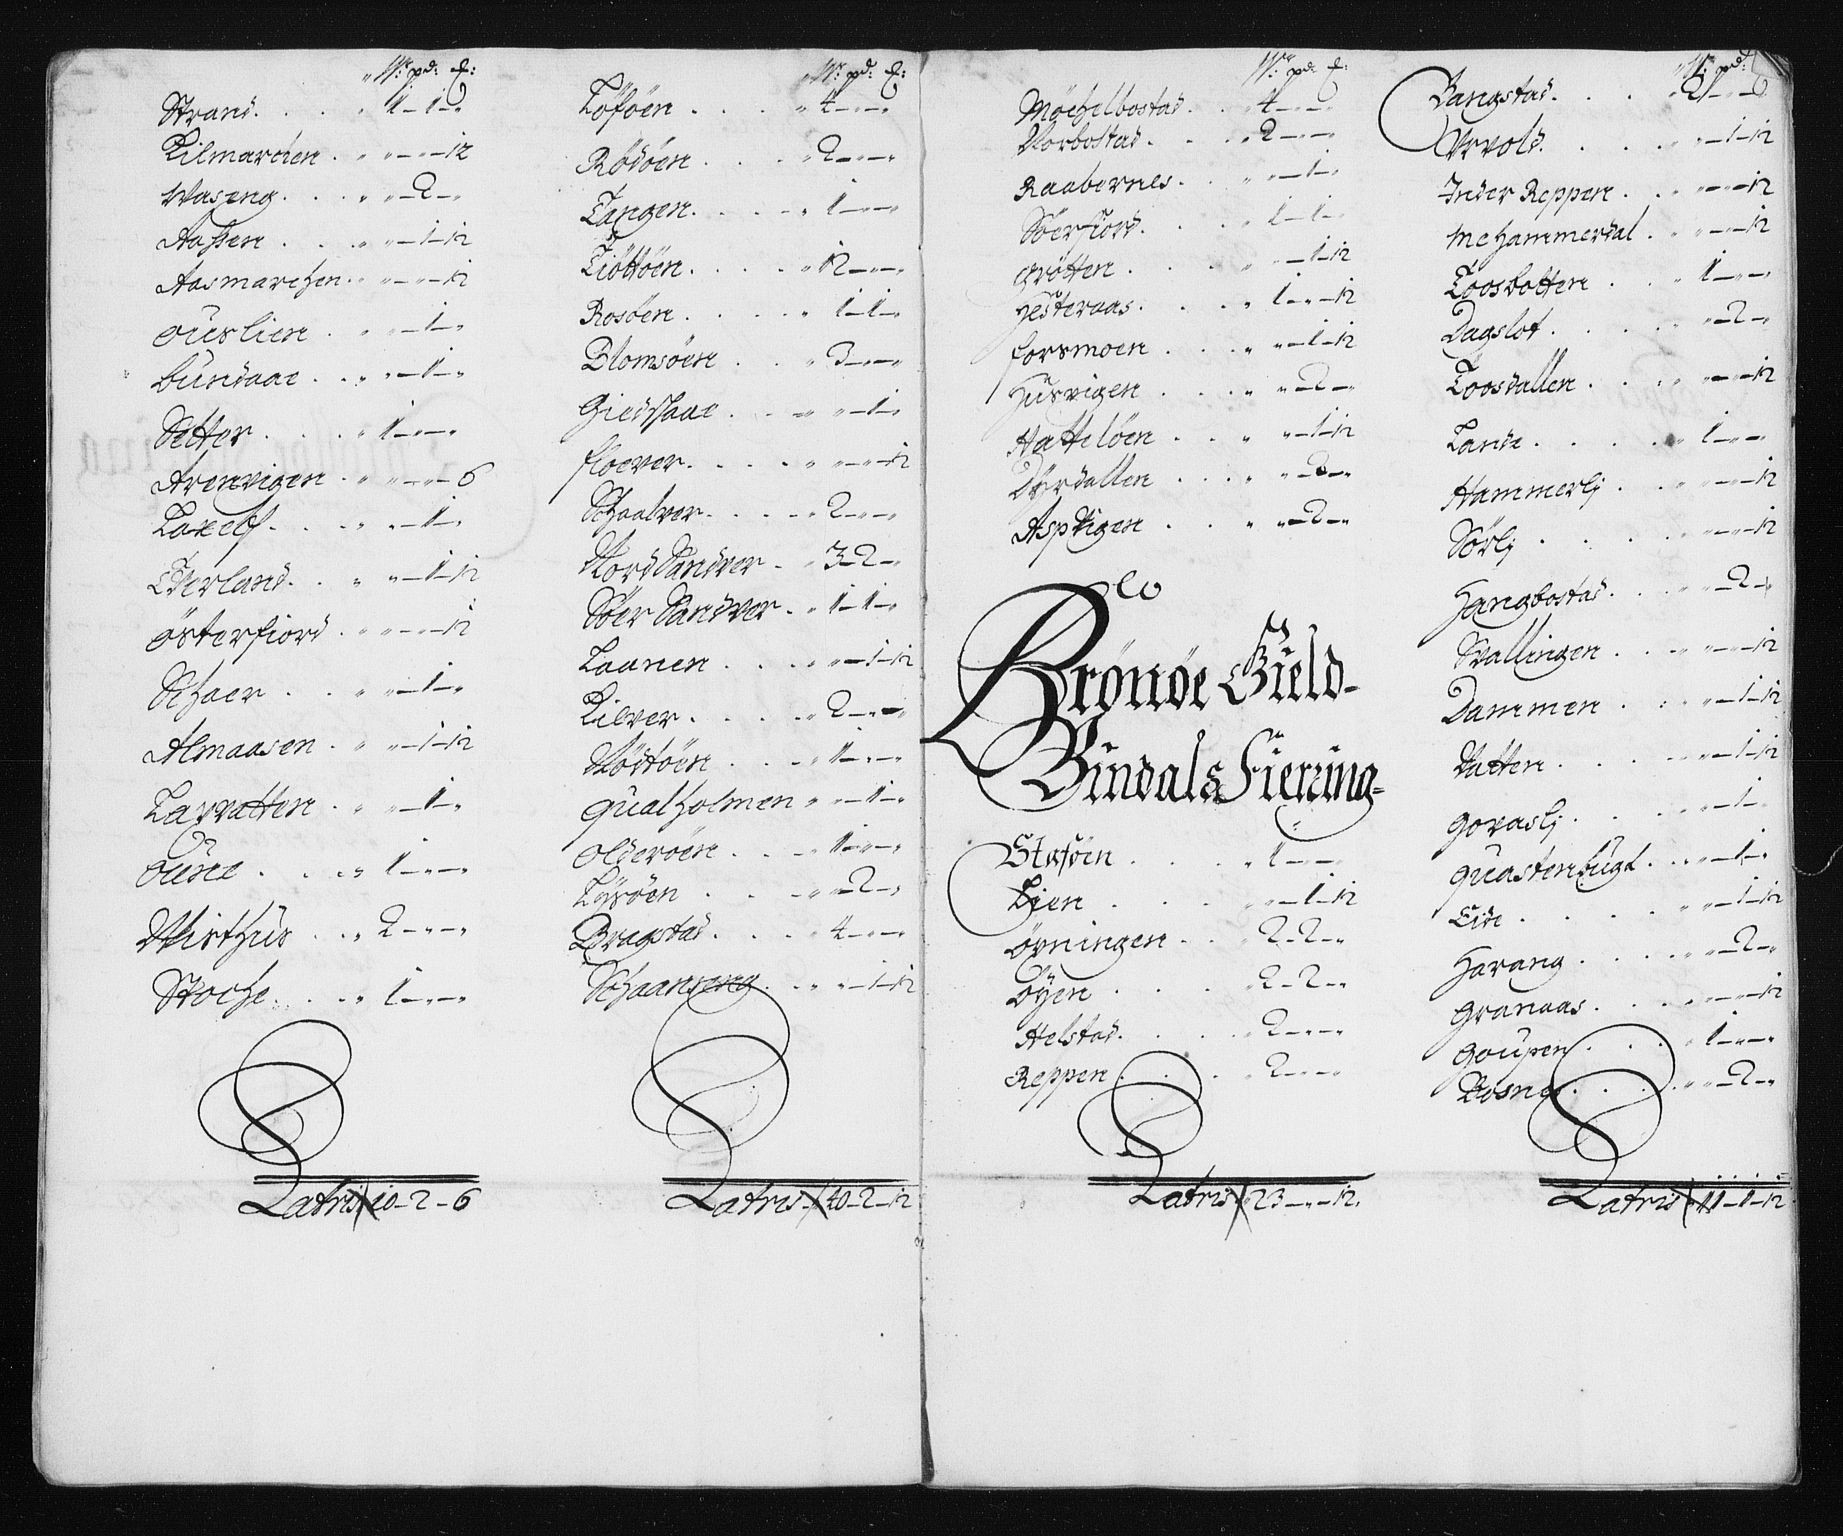 W: pd: t:
Strand. . . „ 1 – 1 – „
Kilmarchen . „ „ – „ – 12
Waseng . . . „ „ – 2 – „
Aassen . . . „ „ – 1 – 12
Aasmarchen . „ „ – „ – 12
Ouslien . . „ „ – 1 – „
Bundaae . . „ „ – 1 – „
Setter . . . „ 1 – „ – „
Arenvigen . „ „ – „ – 6
Laxelf . . . „ „ – 1 – „
Tverland . . „ „ – 1 – 12
Østerfiord . „ „ – „ – 12
Schaer . . „ „ – 1 – „
Almaasen . „ „ – 1 – 12
Laxvatten . „ „ – 1 – „
Oune . . . „ 1 – „ – „
Wisthus . . „ 2 – „ – „
Stoche . . . „ 1 – „ – „
Latris 10 – 2 – 6
W: pd: t:
Löföen . . . „ 4 – „ – „
Rödöen . . . „ 2 – „ – „
Tangen . . . „ 1 – „ – „
Tiöttöen . . . „ 12 – „ – „
Rosöen . . . „ 1 – 1 – „
Blomsöen . . „ 3 – „ – „
Giedsaae . . „ „ – 1 – „
Floever . . . „ „ – „ – 12
Schaalver . . „ 2 – „ – „
Nord Sandver . „ 3 – 2 – „
Söer Sandver . „ 1 – 1 – „
Laanen . . . „ „ – 1 – 12
Kilver . . . „ 2 – „ – „
Möstöen . . „ 1 – „ – „
Qualholmen „ „ – 1 – „
Olderöen . . „ 1 – „ – „
Löxöen . . . „ „ – 2 – „
Bragstad . . „ 4 – „ – „
Schaanseng . „ „ – 1 – 12
Latris 40 – 2 – 12
W: pd: t:
Möchelbostad . „ 4 – „ – „
Norbostad . . „ 2 – „ – „
Raabernes . . „ „ – 1 – „
Söerfiord . . „ 1 – 1 – „
Grötten . . . „ „ – 1 – 12
Hesteraas . . „ 1 – „ – 12
Forsmoen . . „ „ – 1 – 12
Husvigen . . „ „ – 2 – „
Hattiöen . . „ „ – 1 – 12
Dyrdallen . . „ „ – 2 – „
Aspvigen . . „ „ – 2 – „
Brönöe Gield-
Bindals Fierring-
Staföen . . . „ 1 – „ – „
Lien . . . „ „ – 1 – 12
Övningen . . „ 2 – 2 – „
Öyen . . . „ 2 – 2 – „
Helstad . . . „ 2 – „ – „
Reppen . . . „ 2 – „ – „
Latris 23 – „ – 12
W: pd:
Vangstad . . . „ 2 – „ – „
Urvold . . . „ „ – 1 – 12
Inder Reppen . „ „ – „ – 12
Mehammerdal . „ „ – „ – 12
Toosbotten . . „ 1 – „ – „
Dagslot . . . „ „ – 2 – „
Toosdallen . . „ „ – „ – 12
Lande . . . . „ 1 – „ – „
Hammerlj . . „ „ – „ – 12
Sörlj . . . „ „ – „ – 12
Hangbostad . . „ „ – 2 – „
Svallingen . . „ „ – „ – 12
Dammen . . „ „ – 1 – 12
Vatten . . . „ „ – 1 – 12
Govaslj . . . „ „ – 1 – „
Quastenbugt . „ „ – 1 – „
Eide . . . . „ „ – 1 – 12
Harang . . . „ „ – 2 – „
Granaas . . . „ „ – „ – 12
Goupen . . . „ 1 – „ – „
. . . „ „ – 2 – „
Latris 11 – 1 – 12